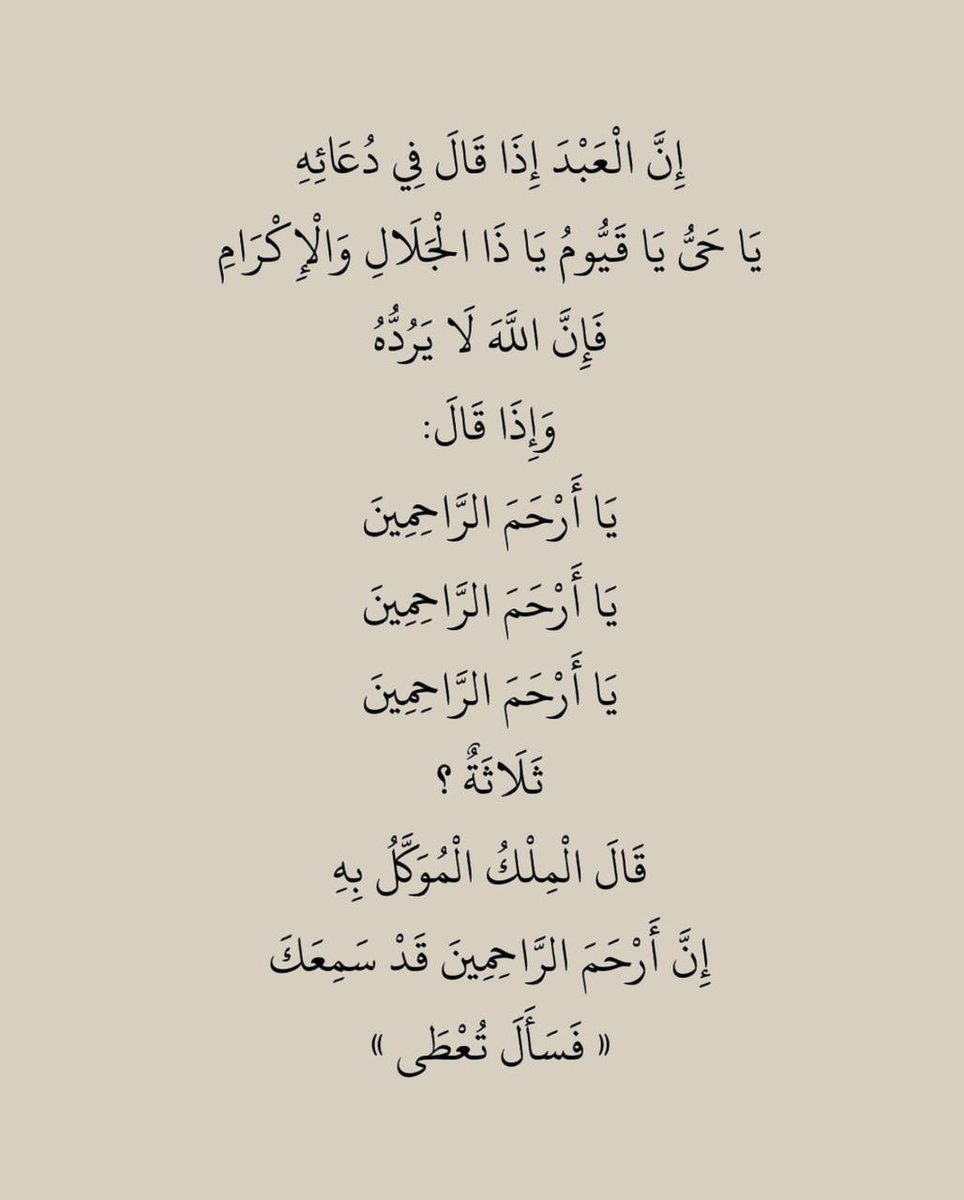 إِنَّ الْعَبْدَ إِذَا قَالَ فِي دُعَائِهِ
يَا حَىُّ يَا قَيُّومُ يَا ذَا الْجَلَالِ وَالْإِكْرَامِ
فَإِنَّ اللَّهَ لَا يَرُدُّهُ
وَإِذَا قَالَ:
يَا أَرْحَمَ الرَّاحِمِينَ
يَا أَرْحَمَ الرَّاحِمِينَ
يَا أَرْحَمَ الرَّاحِمِينَ
ثَلَاثَةٌ ؟
قَالَ الْمِلْكُ الْمُوَكَّلُ بِهِ
إِنَّ أَرْحَمَ الرَّاحِمِينَ قَدْ سَمِعَكَ
« فَسَأَلَ تُعْطَى »